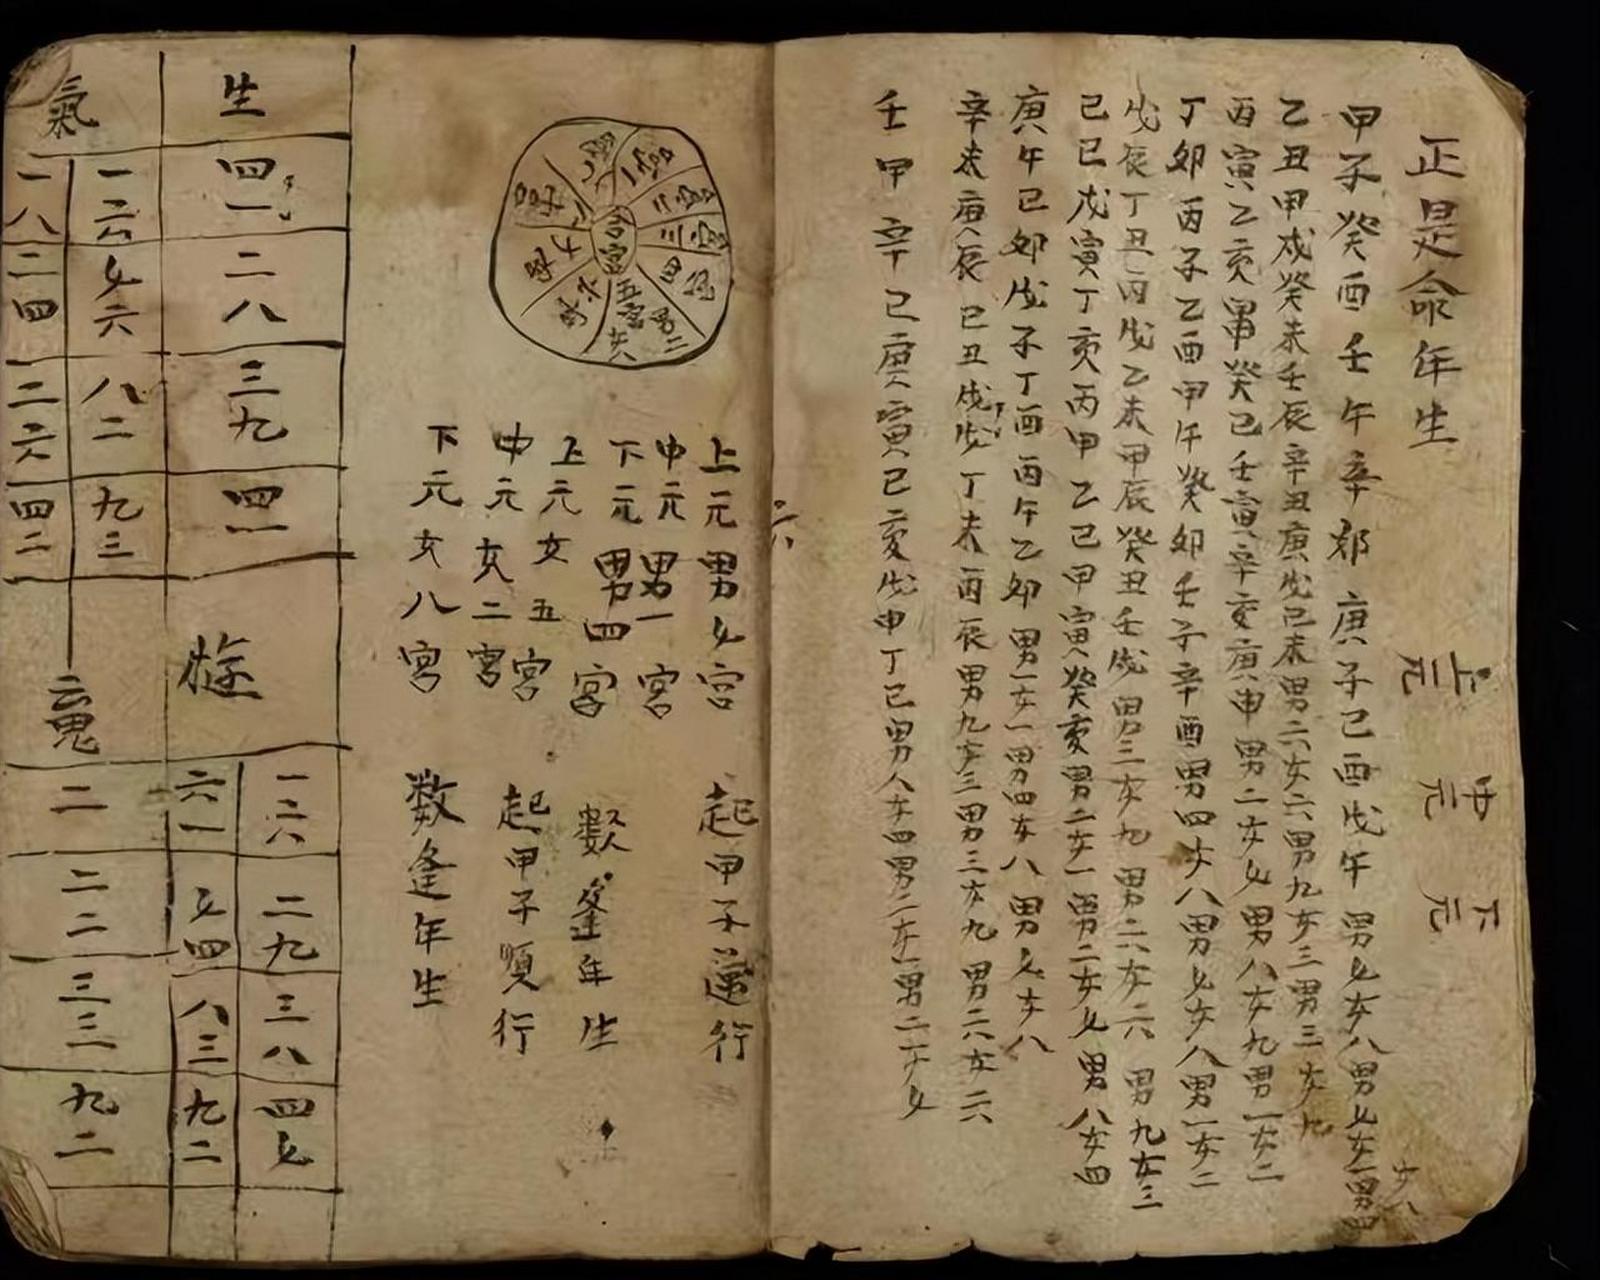 正是命年生
上元
中元
下元
甲子癸酉壬午辛郑庚子己酉戊午男七女八男七女二男四
女八
乙丑甲戍癸未壬辰辛丑庚戌己未男六女六男九女三男三女九
丙寅乙亥甲癸巳壬寅辛亥庚申男二女七男八女九男一女二
丁卯丙子乙酉甲午癸卯壬子辛酉男四女八男七女八男一女二
戊辰丁丑丙戌乙未甲辰癸丑壬戌男三女九男六女六男九女三
己巳戊寅丁亥丙甲乙巳甲寅癸亥男二女一男二女七男八女四
庚午己卯戊子丁酉丙午乙卯男一女一男四女八男七女八
辛未庚辰己丑戊戌丁未丙辰男九女三男三女九男六女六
壬甲辛巳庚寅己亥戊申丁巳男八女四男二女一男二女七
六
合宮
一宮
二宮
三宮
四宮
五宮
男二
女
上元男七宮
中元男一宮
下元男四宮
上元女五宮
中元女二宮
下元女八宮
起甲子逆行
數逢年生
起甲子順行
数逢年生
生
四一
二八
三九
四一
氣
一六
七六
八二
九三
一八
二四
三六
四二
一六
二九
三八
四七
六一
七四
八三
九二
二
二二
三三
九二